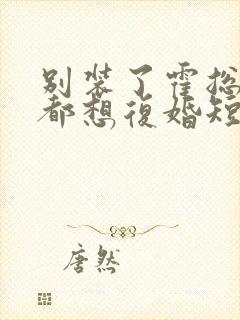 别装了霍总
都想復婚短
唐然